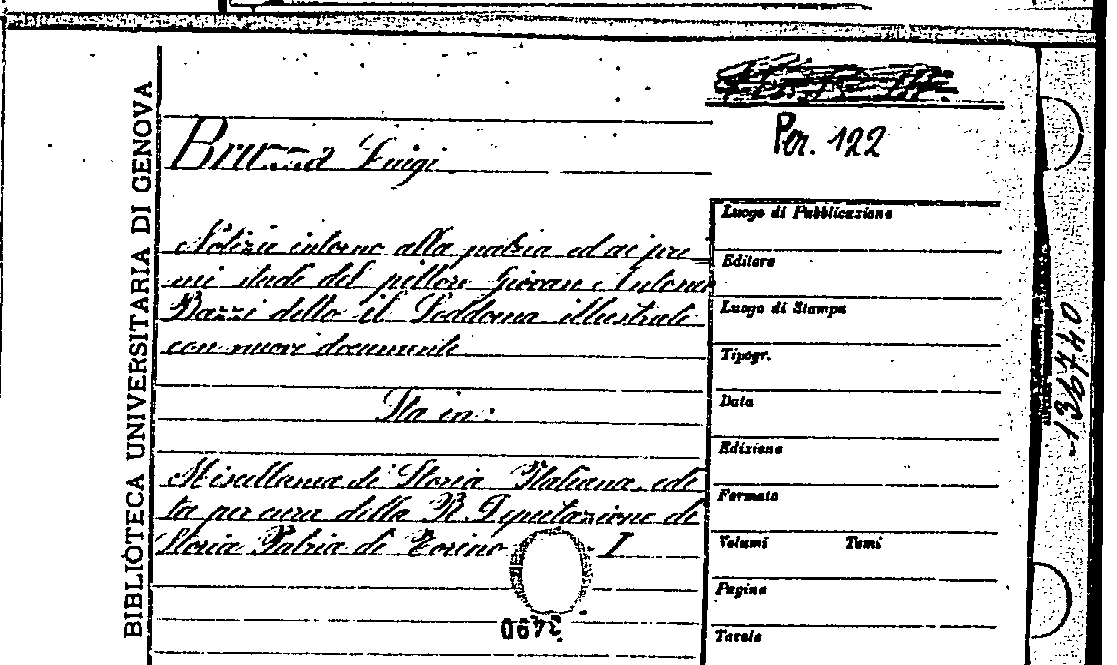 BIBLIOTECA UNIVERSITARIA DI GENOVA
Per. 122
Bruzza Luigi
Notizie intorno alla patria ed ai pri
mi studi del pittore Giovan Antonio
Bazzi detto il Soddoma illustrate
con nuovi documenti
Sta in:
Miscellanea di Storia Italiana, edi
ta per cura della R. Deputazione di
Storia Patria di Torino I
Luogo di Pubblicazione
Editore
Luogo di Stampa
Tipogr.
Data
Edizione
Formato
Volumi Tomi
Pagine
Tavole
047931